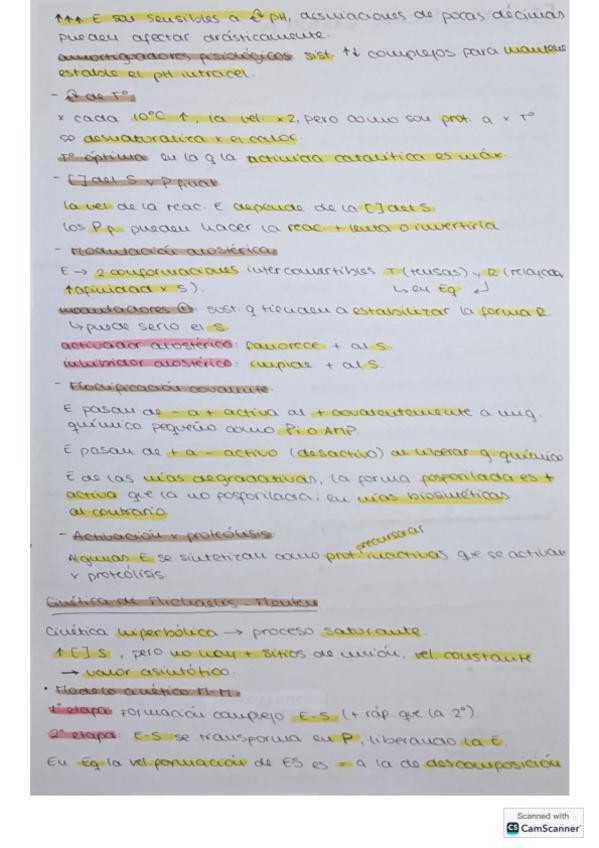 ↑↑↑ E son sensibles a Δ pH, desviaciones de pocas décimas
pueden afectar drásticamente.
amortiguadores fisiológicos sist ↑↓ complejos para mantener
estable el pH intracel.
- Δ de Tº
x cada 10ºC ↑, la vel. x2, pero como son prot. a x Tº
se desnaturaliza x el calor.
Tº óptima en la q la activida catalítica es máx.
- [] del S y P final
la vel de la reac. E depende de la [] del S
los P p. pueden hacer la reac + lenta o invertirla
- Modulación alostérica
E → 2 conformaciones interconvertibles T (tensas) y R (relajada,
↑afinidad x S). ↳ en Eq ↲
moduladores ⊕ sust. q tienden a estabilizar la forma R
↳ puede serlo el S
activador alostérico: favorece + al S.
inhibidor alostérico: impide + al S.
- Modificación covalente.
E pasan de - a + activa al + covalentemente a un g.
químico pequeño como Pi o AMP.
E pasan de + a - activo (desactivo) al liberar g químico
E de las vías degradativas, la forma fosforilada es +
activa que la no fosforilada; en vías biosintéticas
al contrario
- Activación x proteólisis
precursoras
Algunas E se sintetizan como prot. inactivas que se activan
x proteólisis.
Cinética de Michaelis-Menten
Cinética hiperbólica → proceso saturante.
↑ [] S, pero no hay + sitios de unión, vel. constante
→ valor asintótico.
• Modelo cinético M-M
1ª etapa Formación complejo E-S (+ ráp. que la 2ª).
2ª etapa: E-S se transforma en P, liberando la E.
En Eq la vel formación de ES es = a la de descomposición
Scanned with
CS CamScanner